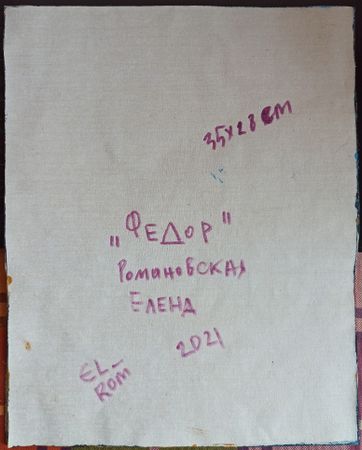 35х28 см
"ФЕДОР"
РомАНОВСКАЯ
ЕЛЕНА
2021
EL-
ROM